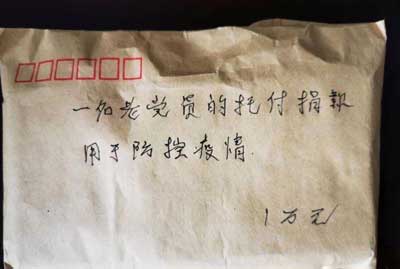 一名老党员的托付捐款
用于防控疫情
1万元